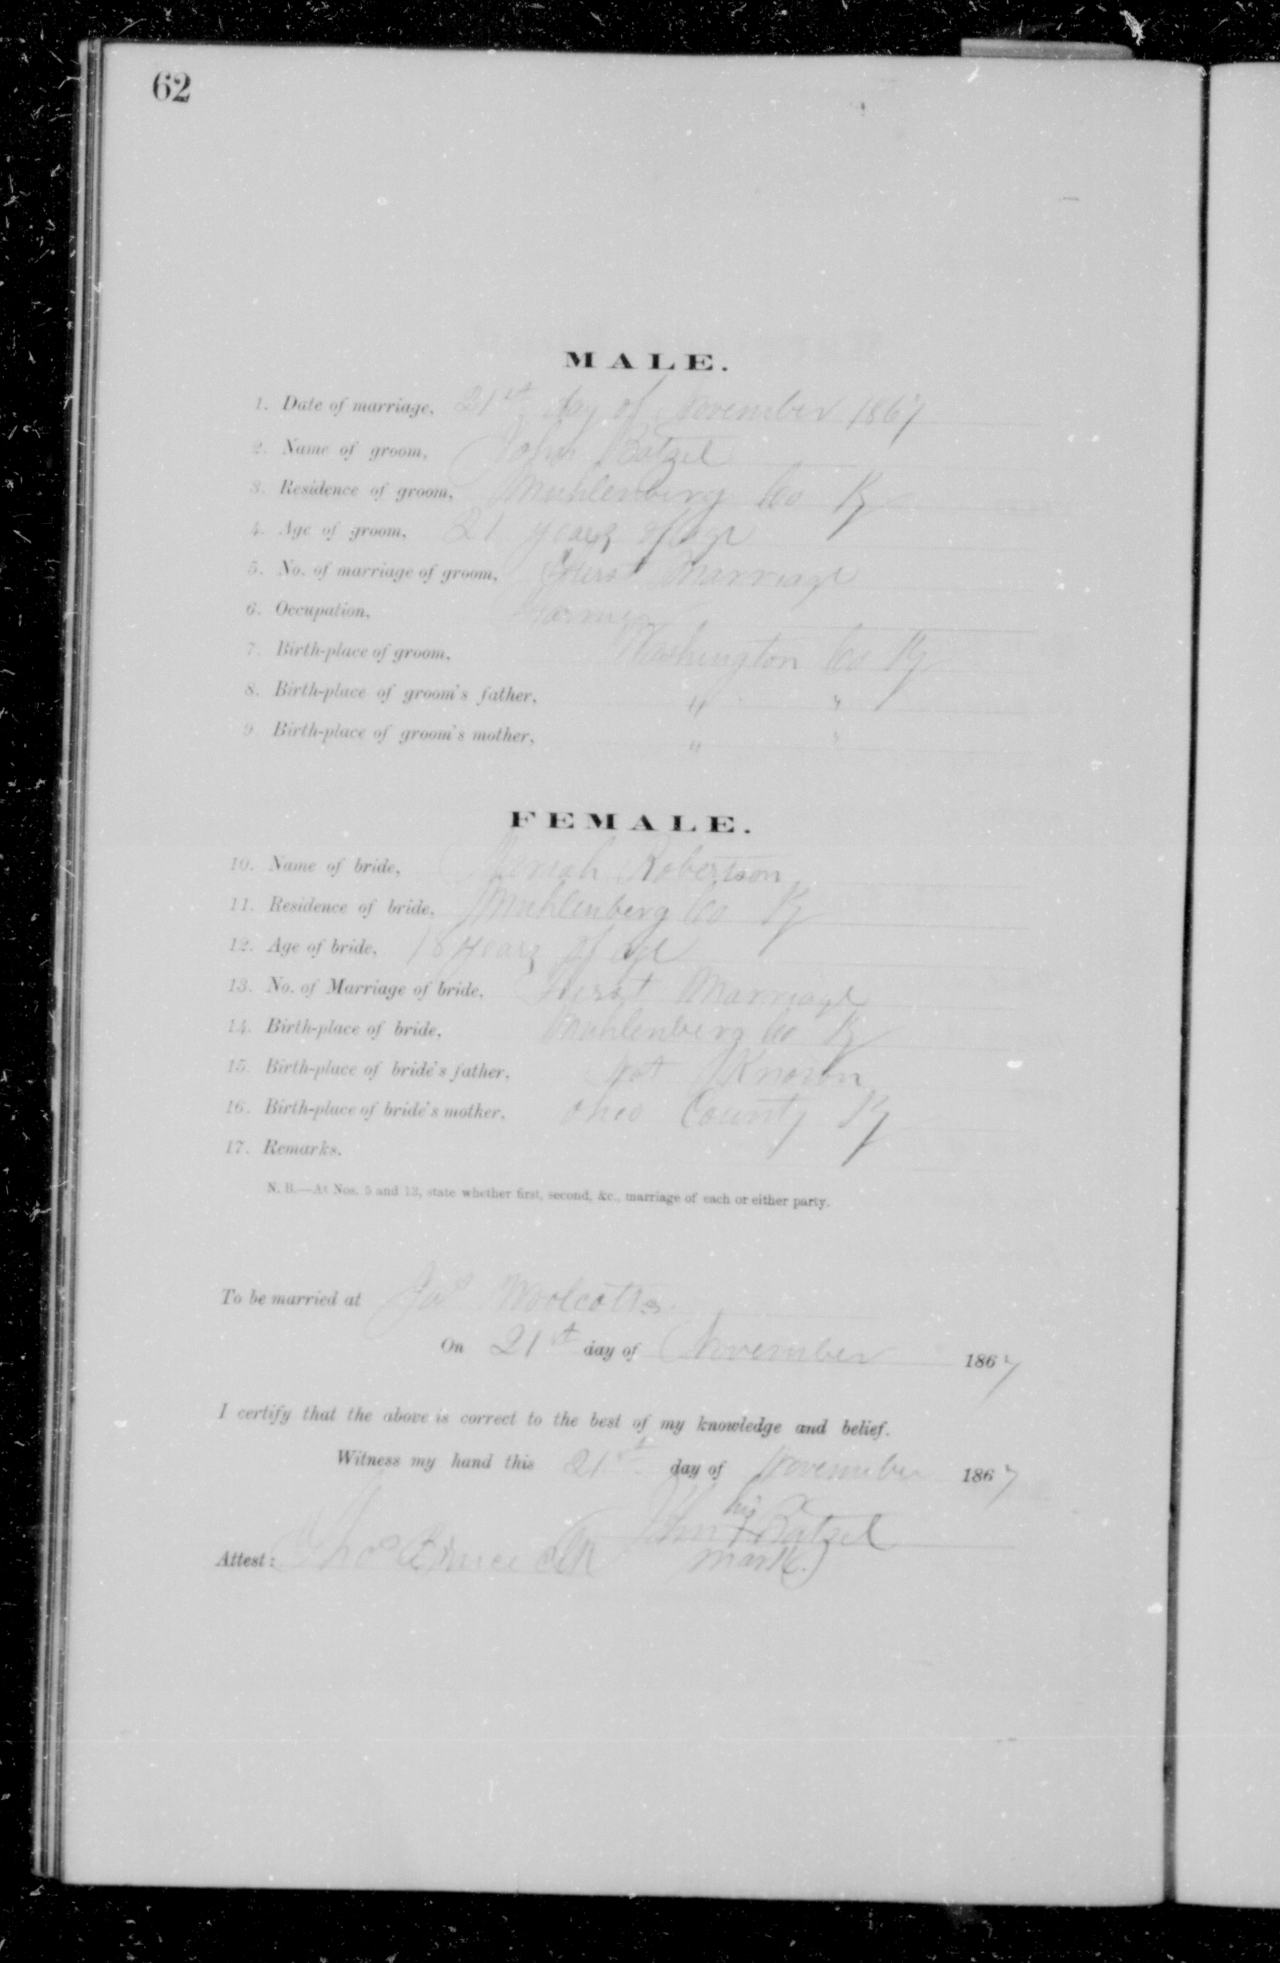 62
MALE.
1. Date of marriage, 21st day of November 1867
2. Name of groom, John Batzel
3. Residence of groom, Muhlenberg Co Ky
4. Age of groom, 21 years of age
5. No. of marriage of groom, First Marriage
6. Occupation, Farmer
7. Birth-place of groom, Washington Co Ky
8. Birth-place of groom's father, " "
9. Birth-place of groom's mother, " "
FEMALE.
10. Name of bride, Robertson
11. Residence of bride, Muhlenberg Co Ky
12. Age of bride, 18 years of age
13. No. of Marriage of bride, First Marriage
14. Birth-place of bride, Muhlenberg Co Ky
15. Birth-place of bride's father, Not Known
16. Birth-place of bride's mother, Ohio County Ky
17. Remarks.
N. B.—At Nos. 5 and 13, state whether first, second, &c., marriage of each or either party.
To be married at Jas Woolcotts
On 21st day of November 1867
I certify that the above is correct to the best of my knowledge and belief.
Witness my hand this 21st day of November 1867
his
John X Batzel
Attest: Thos Bruce Clk mark